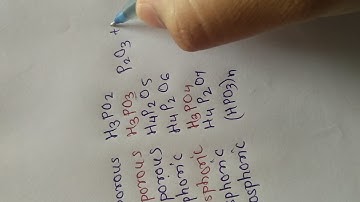 porous H3PO2 P2O3 +
porous H3PO3
porous H4P2O5
phoric H4P2O6
sphoric H3PO4
sphoric H4P2O7
osphoric (HPO3)n